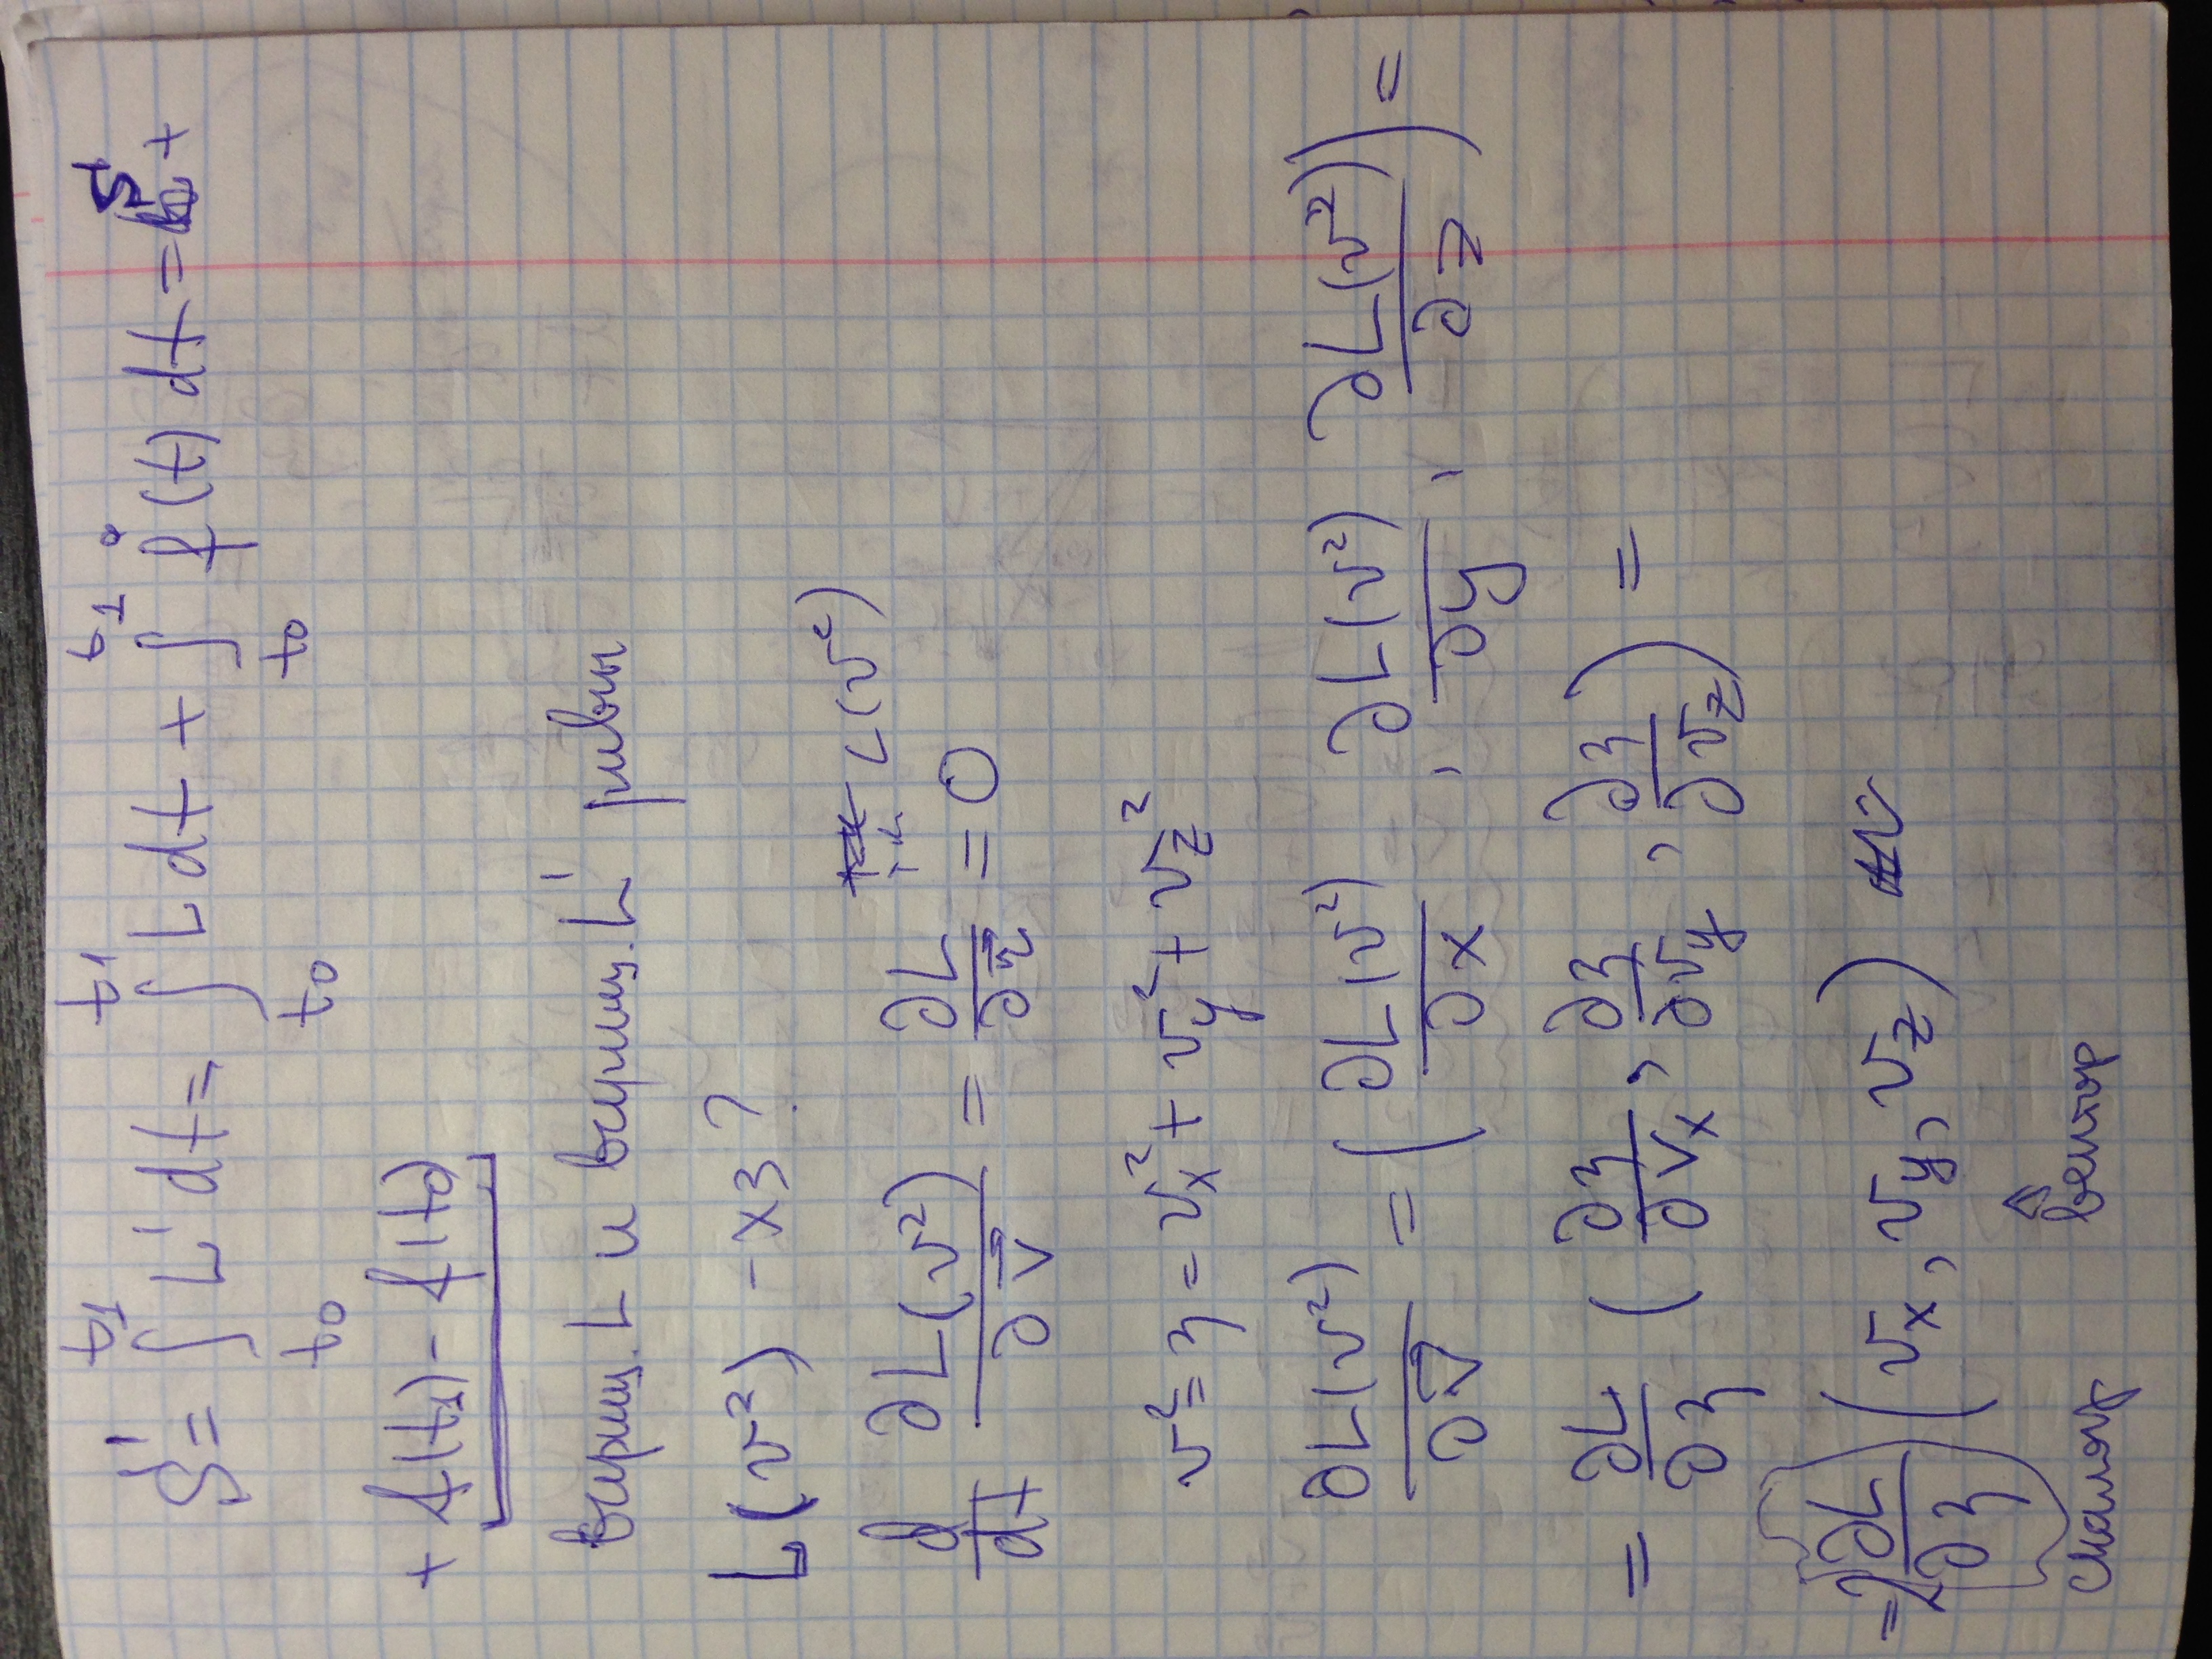 S' = ∫_{t0}^{t1} L' dt = ∫_{t0}^{t1} L dt + ∫_{t0}^{t1} ḟ(t) dt = S +
+ f(t1) - f(t0)
вариац. L и вариац. L' равны
L(v²) - хз?
d/dt ∂L(v²)/∂v̄ = ∂L/∂r̄ = 0 т.к. L(v²)
v² = η = vx² + vy² + vz²
∂L(v²)/∂v⃗ = (∂L(v²)/∂x, ∂L(v²)/∂y, ∂L(v²)/∂z) =
= ∂L/∂η (∂η/∂vx, ∂η/∂vy, ∂η/∂vz) =
= 2∂L/∂η (vx, vy, vz)
скаляр ⇑ вектор